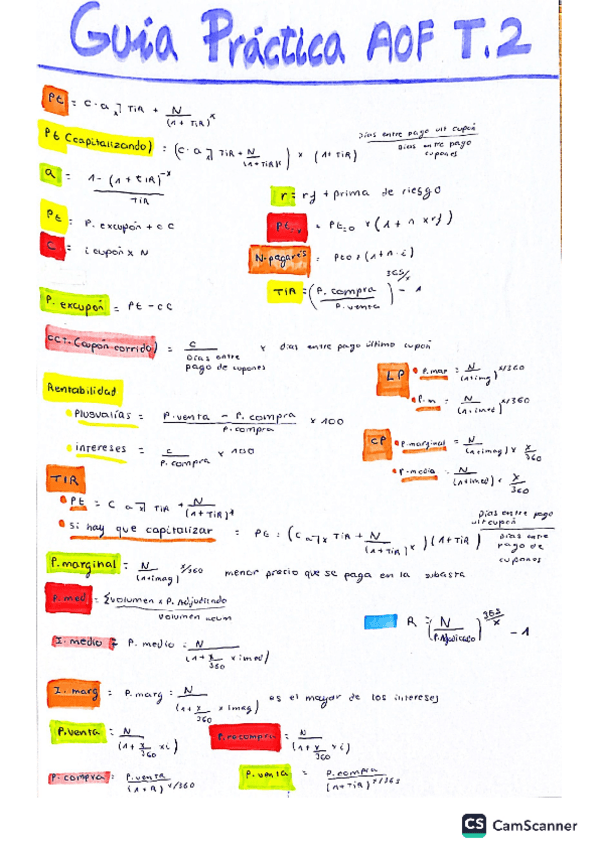 Guía Práctica AOF T.2
Pt = C · a x⌉ TiR + N / (1 + TiR)^x
Pt (capitalizando) = (C · a x⌉ TiR + N / (1+TiR)^x) x (1+ TiR) Dias entre pago ult cupón / Dias entre pago cupones
a = 1 - (1 + tiR)^-x / TiR
r = rf + prima de riesgo
Pt = P. excupón + cc
Pt=x = Pt=0 x (1 + n x rf)
C = i cupón x N
N. pagarés = Pt0 x (1 + n · i)
TiR = (P. compra / P. venta)^365/x - 1
P. excupón = Pt - cc
cc: (cupón corrido) = c / Dias entre pago de cupones x dias entre pago último cupón
LP P. mar = N / (1+img)^x/360
P. m = N / (1+imed)^x/360
Rentabilidad
Plusvalías = P. venta - P. compra / P. compra x 100
intereses = c / P. compra x 100
CP P. marginal = N / (1+imag) x x/360
P. media = N / (1+imed) · x/360
TIR
Pt = C a x⌉ TiR + N / (1+TIR)^x
Si hay que capitalizar = Pt = (C a⌉x TiR + N / (1+TiR)^x) (1+TiR) Dias entre pago ult cupón / Dias entre pago de cupones
P. marginal = N / (1+imag)^x/360 menor precio que se paga en la subasta
P. med = Σ volumen x P. Adjudicado / volumen acum
R = (N / P. Adjudicado)^365/x - 1
I. medio = P. medio = N / (1 + x/360 x imed)
I. marg = P. marg = N / (1 + x/360 x imag) es el mayor de los intereses
P. venta = N / (1 + x/360 x i)
P. recompra = N / (1 + x/360 x i)
P. compra = P. venta / (1+R)^x/360
P. venta = P. compra / (1+TiR)^x/365
CS CamScanner